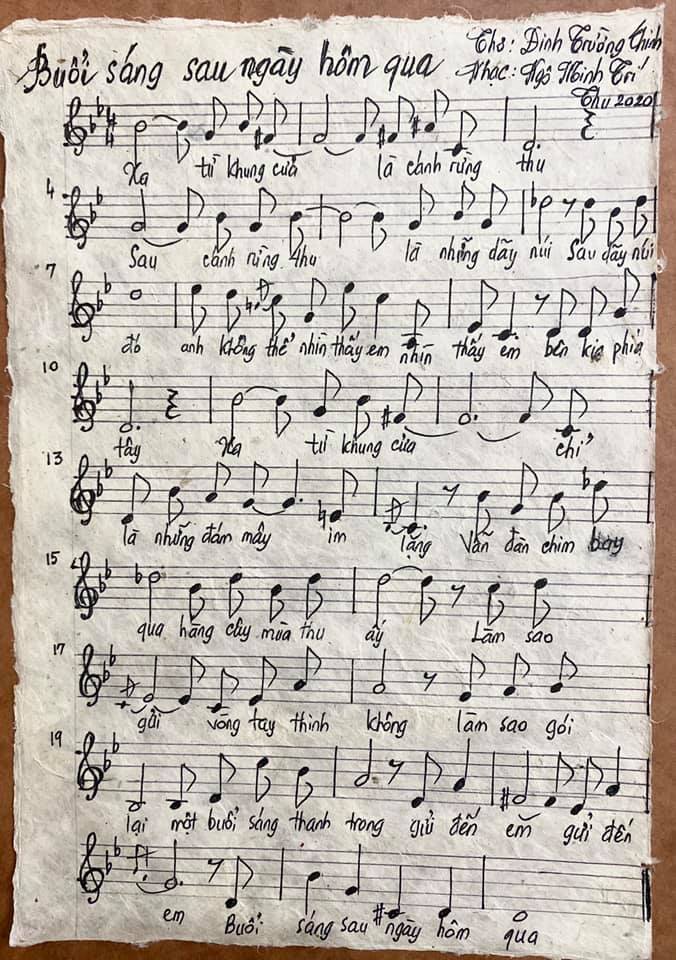 Buổi sáng sau ngày hôm qua
Thơ: Đinh Trường Chinh
Nhạc: Ngô Minh Trí
Thu 2020
Xa từ khung cửa là cánh rừng thu
4
Sau cánh rừng thu là những dãy núi Sau dãy núi
7
đó anh không thể nhìn thấy em nhìn thấy em bên kia phía
10
tây Xa từ khung cửa chỉ
13
là những đám mây im lặng Vẫn đàn chim bay
15
qua hàng cây mùa thu ấy Làm sao
17
gửi vòng tay thinh không làm sao gói
19
lại một buổi sáng thanh trong gửi đến em gửi đến
em Buổi sáng sau ngày hôm qua